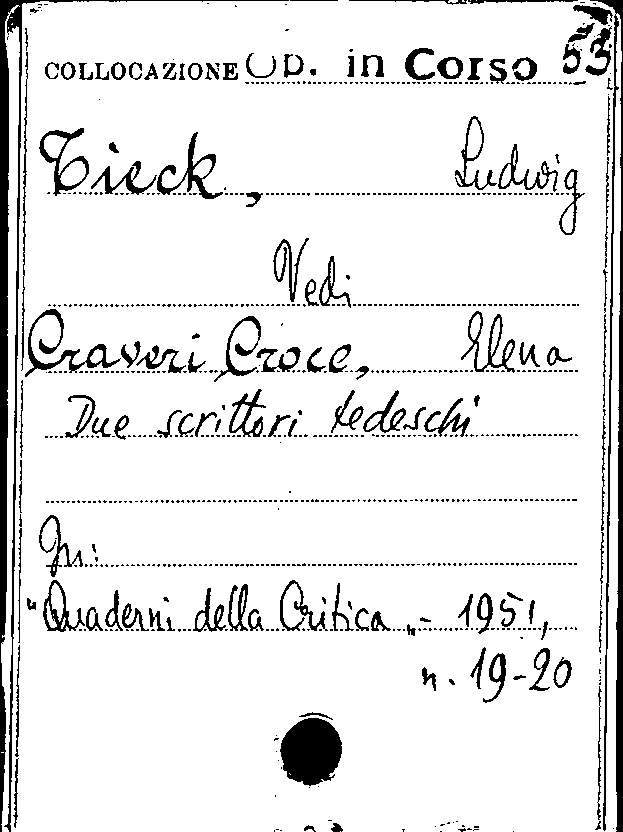 COLLOCAZIONE Op. in Corso 53
Tieck, Ludwig
Vedi
Craveri Croce, Elena
Due scrittori tedeschi
In:
"Quaderni della Critica„ - 1951,
n. 19-20